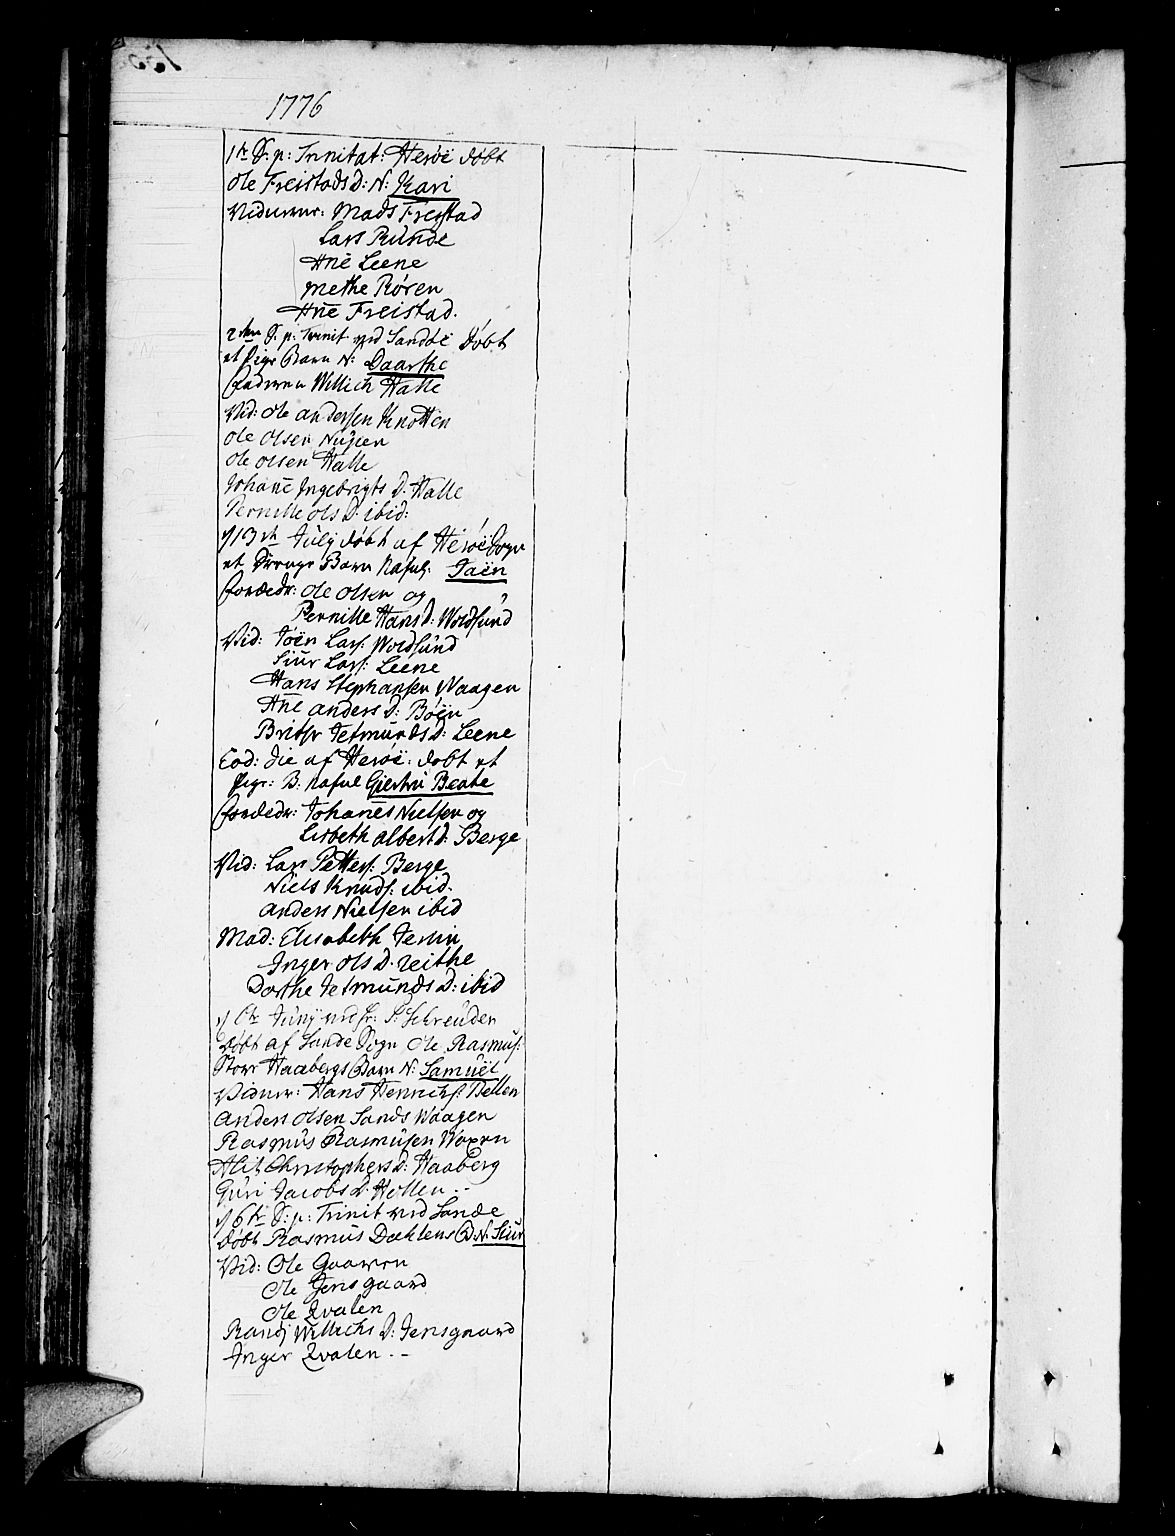 1776
1te S. p: Trinitat: Herøe døbt
Ole Freistads D: N: Kari
Vidnerne: Mads Freystad
Lars Runde
Ane Leene
Methe Røren
Ane Freistad.
2den S. p. Trinit ved Sandøe Døbt
et Pige Barn N: Daarthe
Faderen Willich Halle
Vid: Ole andersen Knotten
Ole Olsen
Ole olsen Halle
Johane Ingebrigts D. Halle
Pernille ols D. ibid:
d 13de Julij døbt af Herøe Sogn
et Drenge Barn Nafnl: Jaën
Foræedr: Ole Olsen og
Pernille Hans D: Woldsund
Vid: Joën Lars: Woldsund
Siur Lars: Leene
Hans Stephansen Waagen
Ane anders D: Bøen
Brithe Jetmunds D: Leene
Eod: die af Herøe: døbt et
Pige: B. Nafnl Giertru Beate
Foræedr: Johanes Nielsen og
Lisbeth albert D: Berge
Vid: Lars Petters: Berge
Niels Knuds: ibid.
anders Nielsen ibid
Mad: Elisabeth
Inger ols D.
Dorthe Jetmunds D: ibid
Junij ved Hr: S: Schreuder
Døbt af Sande Sogn Ole Rasmus:
Haabergs Barn N: Samuel
Vidner: Hans Henrichs:
anders olsen Sands Waagen
Rasmus Rasmusen
Christophers D: Haaberg
Guri Jacobs D.
d 6te S: p: Trinit ved Sande
Døbt Rasmus B: N: Siur
Vid: Ole
Ole Jensgaard
Ole Qvalen
Randj Willichs D: Jensgaard
Inger Qvalen --